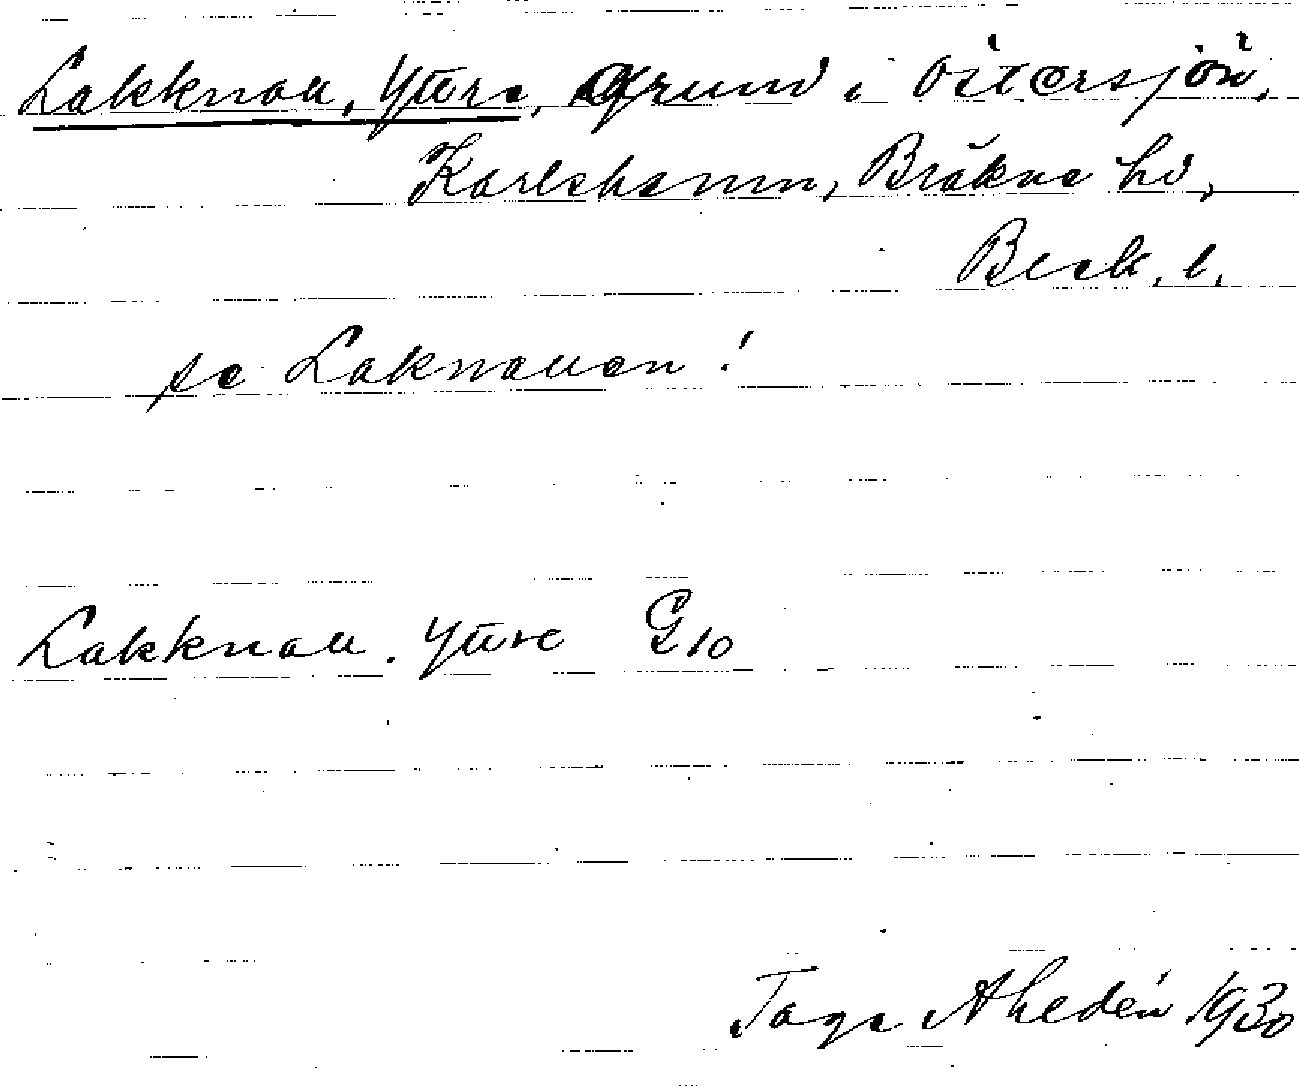 Lakknau, Yttre, Grund i Östersjön,
Karlshamn, Bräkne hd,
Blek. l.
se Laknauen!
Lakknau. Yttre G 10
Tage Ahldén 1930